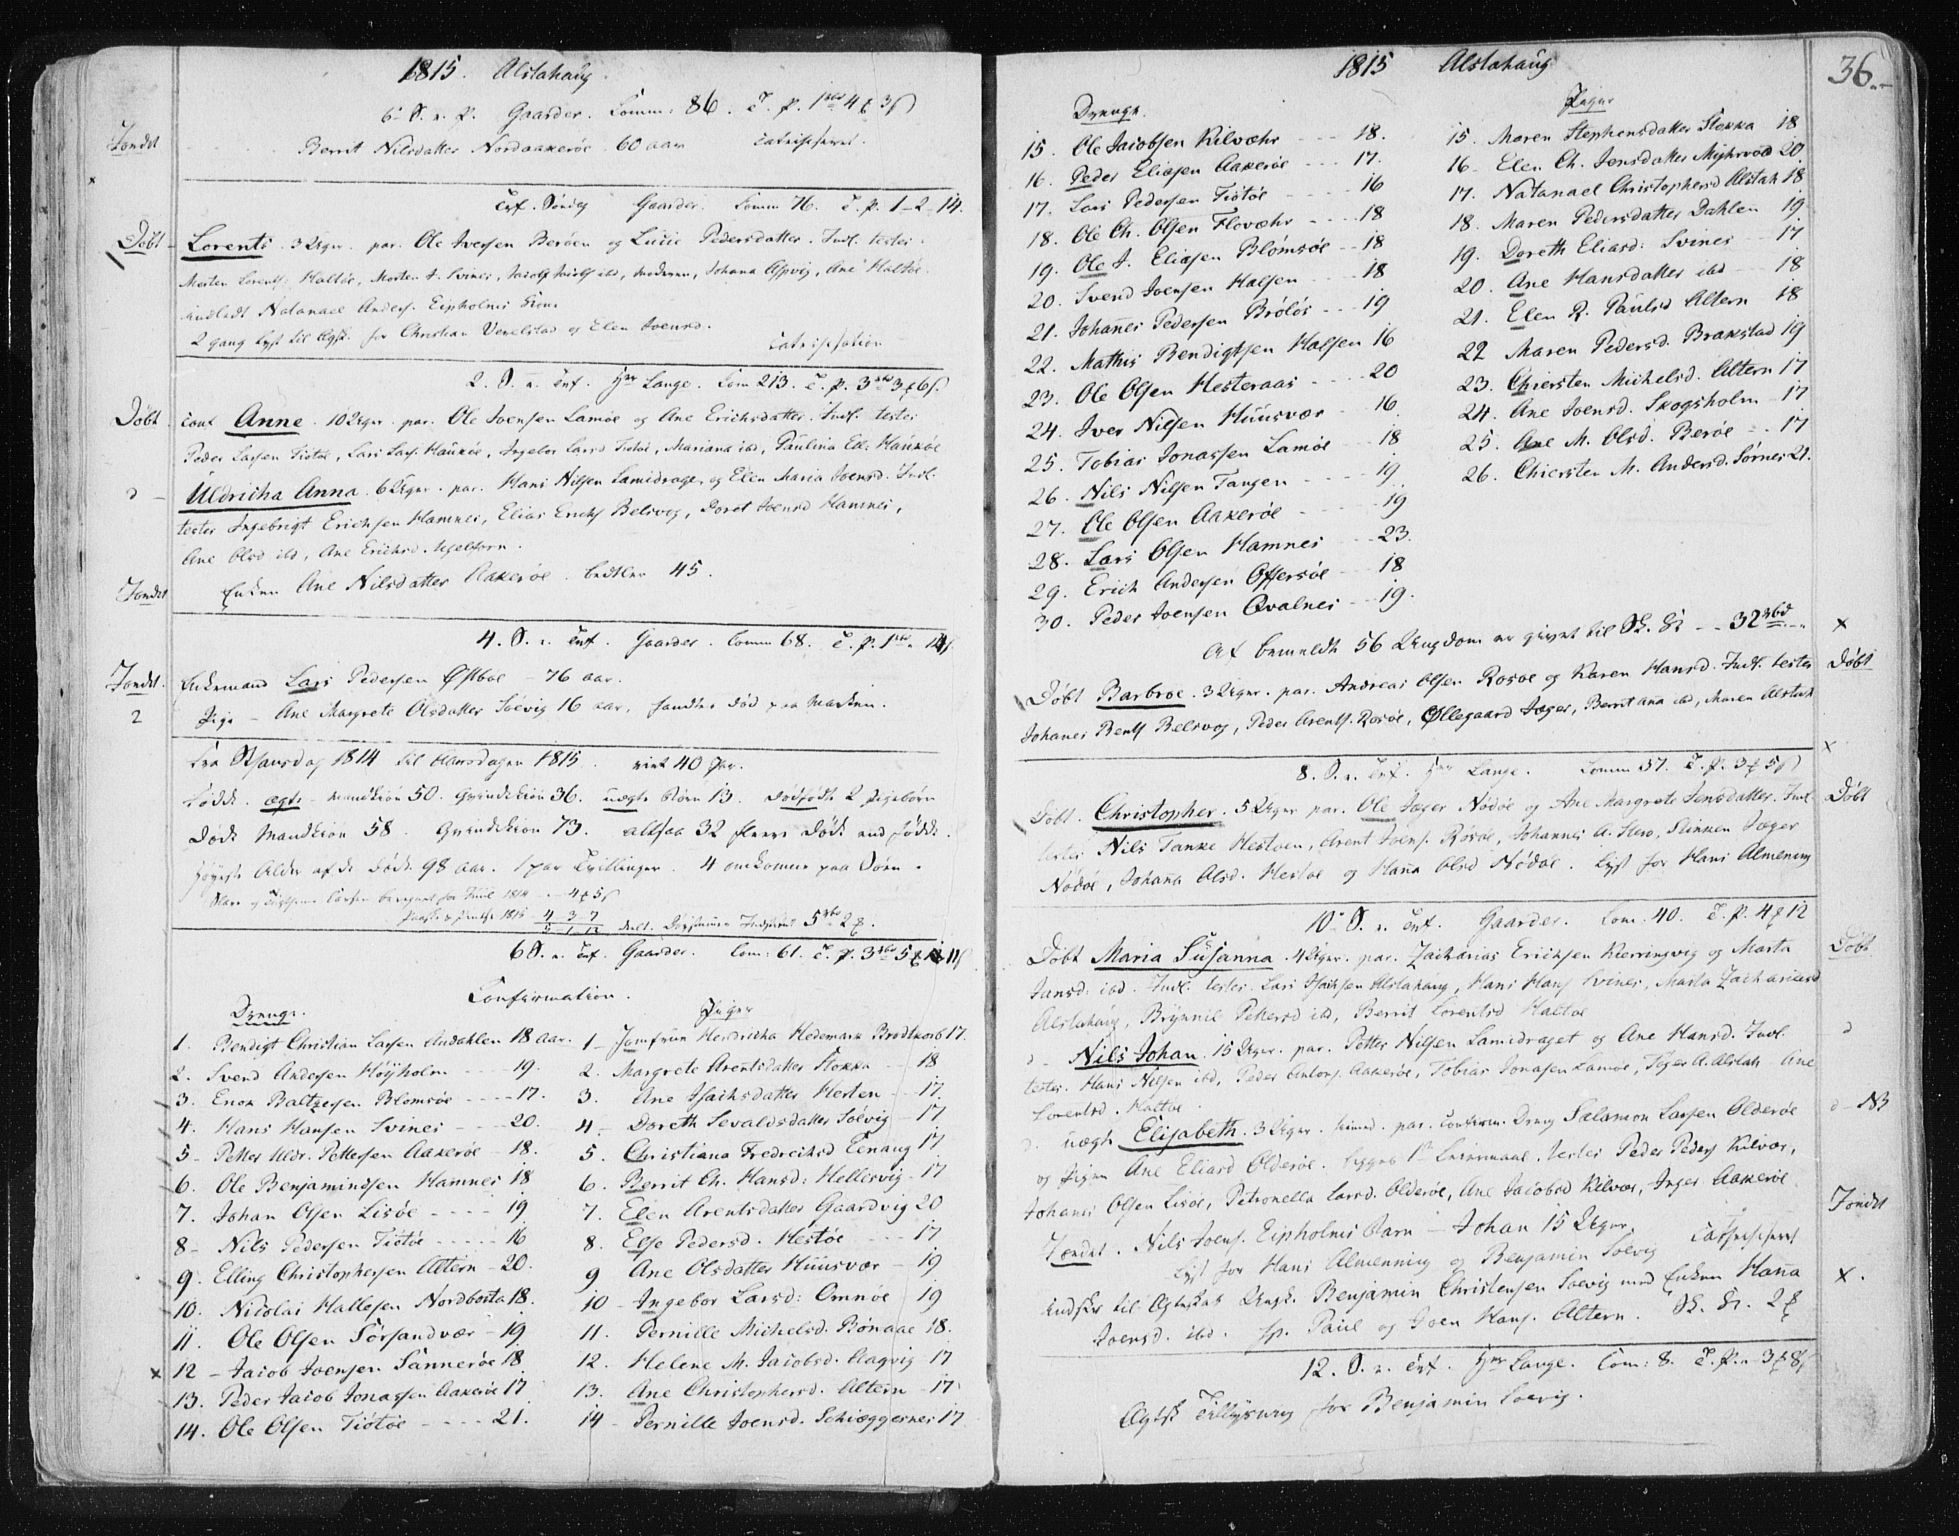 1815. Alstahaug.
6 S. e. P. Gaarder. Comm: 86. T. P. 1 4 3
Jordet
Berrit Nilsdatter Nordaakerøe 60 aar catechiseret.
Trf. Søndag Gaarder. Comm 76. T. P. 1-2-14.
Døbt
Lorents 3 Uger. par. Ole Iversen Berøen og Lucie Pedersdatter. Intr. testes
Morten Lorents: Haltøe, Morten J. Svines, Jacob Jacobs ibd, moderen, Johana Aspvig, Ane Haltøe.
indledt Natanael Anders. Eipholmes Kone
2 gang Lyst til Ægt. for Christian Venelstad og Elen Joensd.
Catechisation
2. S. e. Trf. Hr Lange. Com 213. T. P. 3 3 6
Døbt
conf Anne. 10 Uger. par. Ole Joensen Lamøe og Ane Erichsdatter. Intr. testes
Peder Larsen Tiøtøe, Lars Lars. Haukøe, Ingebor Larsd Tiøtøe, Mariana ibd, Paulina Ell: Haukøe
d -
Uldricha Anna. 6 Uger. par. Hans Nilsen Lamidraget og Elen Maria Joensd. Intr.
testes Ingebrigt Erichsen Hamnes, Elias Erichs Belsvog, Doret Joensd Hamnes,
Ane Olsd ibd, Ane Erichsd.
Jordet
Enken Ane Nilsdatter Aakerøe. betler 45.
4. S. e. Trf. Gaarder. Comm 68. T. P. 1 14
Jordet.
Enkemand Lars Pedersen Østboe - 76 aar.
2
Pige - Ane Margrete Olsdatter Søevig 16 aar, fandtes død paa Marken.
fra Hansdag 1814 til Hansdagen 1815. viet 40 Par.
fødde. ægte - mandkiøn 50. Qvindekiøn 36. uægte Børn 13. Dødfødte 2 Pigebørn
Døde Mandkiøn 58. Qvindekiøn 73. altsaa 32 flere døde end fødde.
høyeste Alder af de døde 98 aar. 1 par Tvillinger. 4 omkomne paa Søen.
1814 - 4 5
1815 4 3 7
5 1 12 5 2
6 S. e. Trf. Gaarder. Com: 61. T. P. 3 5 11
Confirmation.
Drenge.
1. Bendigt Christian Larsen Andahlen 18 aar.
2. Svend Andersen Høyholm - 19.
3. Enok Baltzersen Blomsøe - 17.
4. Hans Hansen Svines - 20.
5 - Petter Uldr. Pettersen Aakerøe - 18.
6. Ole Benjaminsen Hamnes 18
7. Johan Olsen Lisøe - 19
8 - Nils Pedersen Tiøtøe - 16
9. Elling Christophersen Altern - 20.
10. Nicolai Hallesen Nordbosta 18.
11. Ole Olsen Sørsandvær - 19
x 12 - Jacob Joensen Sannerøe 18
13. Peder Jacob Jonassen Aakerøe 17
14. Ole Olsen Tiøtøe - 21.
Piger
1 - Jomfrue Hendricha Hedemark Brodkorb 17.
2. Margrete Arentsdatter Stokka - 18
3. Ane Isachsdatter Hesten - 17.
4 - Doreth Sevaldsdatter Søevig - 17
5. Christiana Fredrichsd Tenaug 17
6. Berrit Ch. Hansd: Hellesvig - 17
7. Elen Arentsdatter Gaardvig 20
8. Else Pedersd. Hestøe - 17
9 Ane Olsdatter Huusvær - 19
10 - Ingebor Larsd: Omnøe 19
11. Pernille Michelsd. Bønaae 18.
12. Helene M. Jacobsd. Aagvig 17
13. Ane Christophersd. Altern - 17.
14 - Pernille Joensd. Schiæggesnes 17
1815 Alstahaug
36.
Drenge.
15. Ole Jacobsen Kilvæhr - 18.
16. Peder Eliasen Aakerøe - 17.
17. Lars Pedersen Tiøtøe - 16
18. Ole Ch. Olsen Flovæhr - 18
19. Ole J. Eliasen Blomsøe - 18
20. Svend Joensen Halsen - 18
21. Johannes Pedersen Brøløs - 19
22. Mathis Bendigtsen Halsen 16
23. Ole Olsen Hesteraas - 20
24. Iver Nilsen Huusvær - 16
25. Tobias Jonassen Lamøe - 18
26. Nils Nilsen Tangen - 19
27. Ole Olsen Aakerøe - 19
28. Lars Olsen Hamnes - 23.
29. Erich Andersen Offersøe - 18
30. Peder Joensen Qvalnes - 19.
Piger
15. Maren Stephensdatter Stokka 18
16. Elen Ch. Jensdatter Myhrvod 20.
17. Natanael Christophersd Alstah 18
18. Maren Pedersdatter Dahlen 19
19. Doreth Eliasd: Svines - 17
20. Ane Hansdatter ibd - 18
21. Elen R. Paulsd Altern 18
22 Maren Pedersd. Brakstad 19
23. Chiersten Michelsd. Altern 17
24. Ane Joensd. Skogsholm - 17
25. Ane M. Olsd. Berøe - 17
26. Chiersten M. Andersd. Sørnes 21.
Af bemeldte 56 Ungdom er givet til Sk. Ks - 32
x
Døbt
Døbt Barbroe. 3 Uger. par. Andreas Olsen Rosøe og Karen Hansd. Intr. testes
Johanes Bents Belsvog, Peder Arents. Rosøe, Øllegaard Jæger, Berrit Ana ibd, Maren Alstah
x
8. S. e. Trf. Hr Lange. Comm 57. T. P. 3 5
Døbt
Døbt. Christopher. 5 Uger par. Ole Jæger Nødøe og Ane Margrete Jonsdatter. Intr
testes Nils Tanke Hestøen, Arent Joens. Rosøe, Johannes A. Hero, Slinken Jæger
Nødøe, Johana Olsd. Hestøe og Hana Olsd Nødøe. Lyst for Hans Almening
10 S. e. Trf. Gaarder. Com. 40. T. P. 4 12
Døbt
Døbt Maria Susanna. 4 Uger. par. Zacharias Erichsen Kierringvig og Marta
Jansd: ibd. Intr. testes. Lars Isachsen Alstahaug, Hans Hans Svines, Marta Zachariasd
Alstahaug, Brynnil Pettersd ibd, Berrit Lorentsd Haltøe
d
d - Nils Johan. 15 Uger. par. Petter Nilsen Lamidraget og Ane Hansd. Intr.
testes. Hans Nilsen ibd, Peder Antons. Aakerøe, Tobias Jonasen Lamøe, Peder A. Alstah Ane
Lorentsd. Haltøe.
d - NB
d uægte Elisabeth. 3 Uger. par. Confirm. Dreng Salamon Larsen Olderøe
og Pigen Ane Eliasd Olderøe. begges 1ste Leiermaal. testes Peder Peders Kilvær,
Johanes Olsen Lisøe, Petronella Larsd. Olderøe, Ane Jacobsd Kilvær, Inger Aakerøe.
Jordet
Jordet. Nils Joens. Eipholmes Barn - Johan 15 Uger. Catechiseret
Lyst for Hans Almenning og Benjamin Soevig
x.
indskr. til Ægteskab Ungk. Benjamin Christensen Soevig med Enken Hana
Joensd. ibd. sp. Paul og Joen Hans. Altern. Sk. Ks. 2
12. S. e. Trf. Hr Lange. Com: 8. T. P. 3 8
Ægtsk Tillysning for Benjamin Soevig.